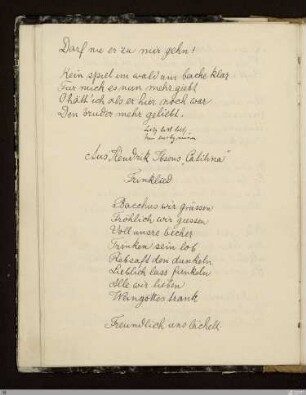 Darf nie er zu mir gehn!
Kein spiel im wald am bache klar
Für mich es nun mehr giebt
O hätt' ich als er hier noch war
Den bruder mehr geliebt.
Aus Hendrik Ibsens „Catilina“
Trinklied
Bacchus wir grüssen
Fröhlich wir giessen
Voll unsre becher
Trinken sein lob
Rebsaft den dunkeln
Lieblich lass funkeln
Alle wir lieben
Weingottes trank
Freundlich uns lächelt